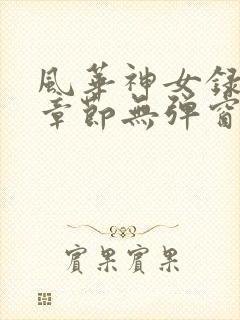 風華神女録
章節無彈窗
賓果賓果